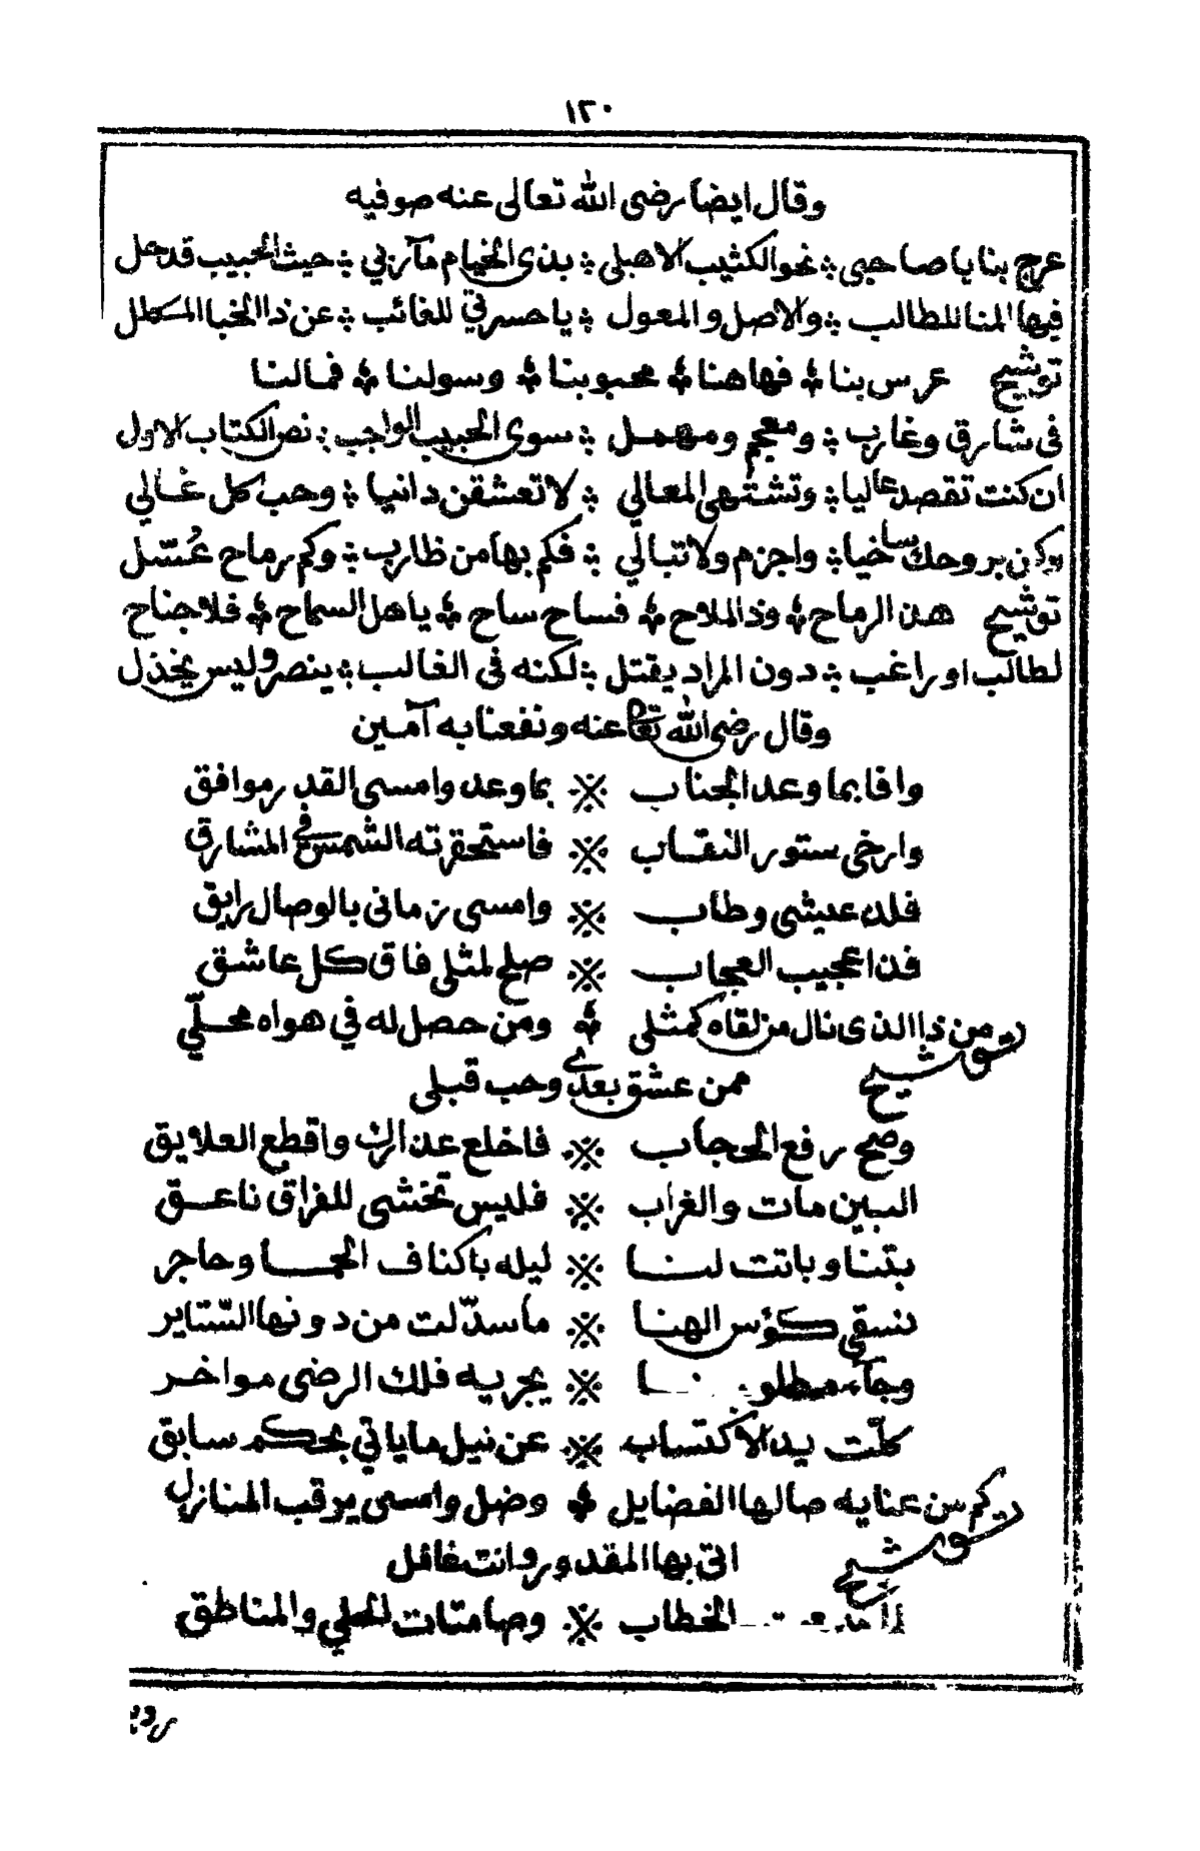 ١٢٠
وقال ايضا رضى الله تعالى عنه صوفيه
عرج بنا يا صاحبي ؞ نحو الكثيب الاهيلي ؞ بذى الخيام مآربي ؞ حيث الحبيب قد حل
فيها المنا للطالب ؞ والاصل والمعول ؞ يا حسرتي للغائب ؞ عن ذا الخبا المكلل
توشيح عرس بنا ؞ فها هنا ؞ محبوبنا ؞ وسولنا ؞ فما لنا
فى شارق وغارب ؞ ومعجم ومهمل ؞ سوى الحبيب الواجب ؞ نص الكتاب الاول
ان كنت تقصد عاليا ؞ وتشتهى المعالي ؞ لا تعشقن دانيا ؞ وحب كل غالي
وكن بروحك ساخيا ؞ واجزم ولا تبالي ؞ فكم بها من ظارب ؞ وكم رماح عُسّل
توشيح هذ الرماح ؞ وذ الملاح ؞ فساح ساح ؞ يا هل السماح ؞ فلا جناح
لطالب او راغب ؞ دون المراد يقتل ؞ لكنه فى الغالب ؞ ينصر وليس يخذل
وقال رضى الله تعا عنه ونفعنا به آمين
وافا بما وعد الجناب ※ بما وعد وامسى القدر موافق
وارخى ستور النقاب ※ فاستحقرته الشمس في المشارق
فلذ عيشى وطاب ※ وامسى زمانى بالوصال رايق
فذا عجيب العجاب ※ صلح لمثلى فاق كل عاشق
توشيح من ذا الذى نال من لقاه كمثلى ؞ ومن حصل له في هواه محلّي
ممن عشق بعدي وحب قبلى
وصح رفع الحجاب ※ فاخلع عذ الرث واقطع العلايق
البين مات والغراب ※ فليس تخشى للفراق ناعق
بتنا وباتت لنا ※ ليله باكناف الحجا وحاجر
نسقى كؤس الهنا ※ ما سدّلت من دونها السّتاير
وجاء مطلو نا ※ يجريه فلك الرضى مواخر
كلّت يد الاكتساب ※ عن نيل ما ياتي بحكم سابق
توشيح كم من عنايه صالها الفضايل ؞ وضل وامسى يرقب المنازل
اتى بها المقدور وانت غافل
الخطاب ※ وصامتات الحلي والمناطق